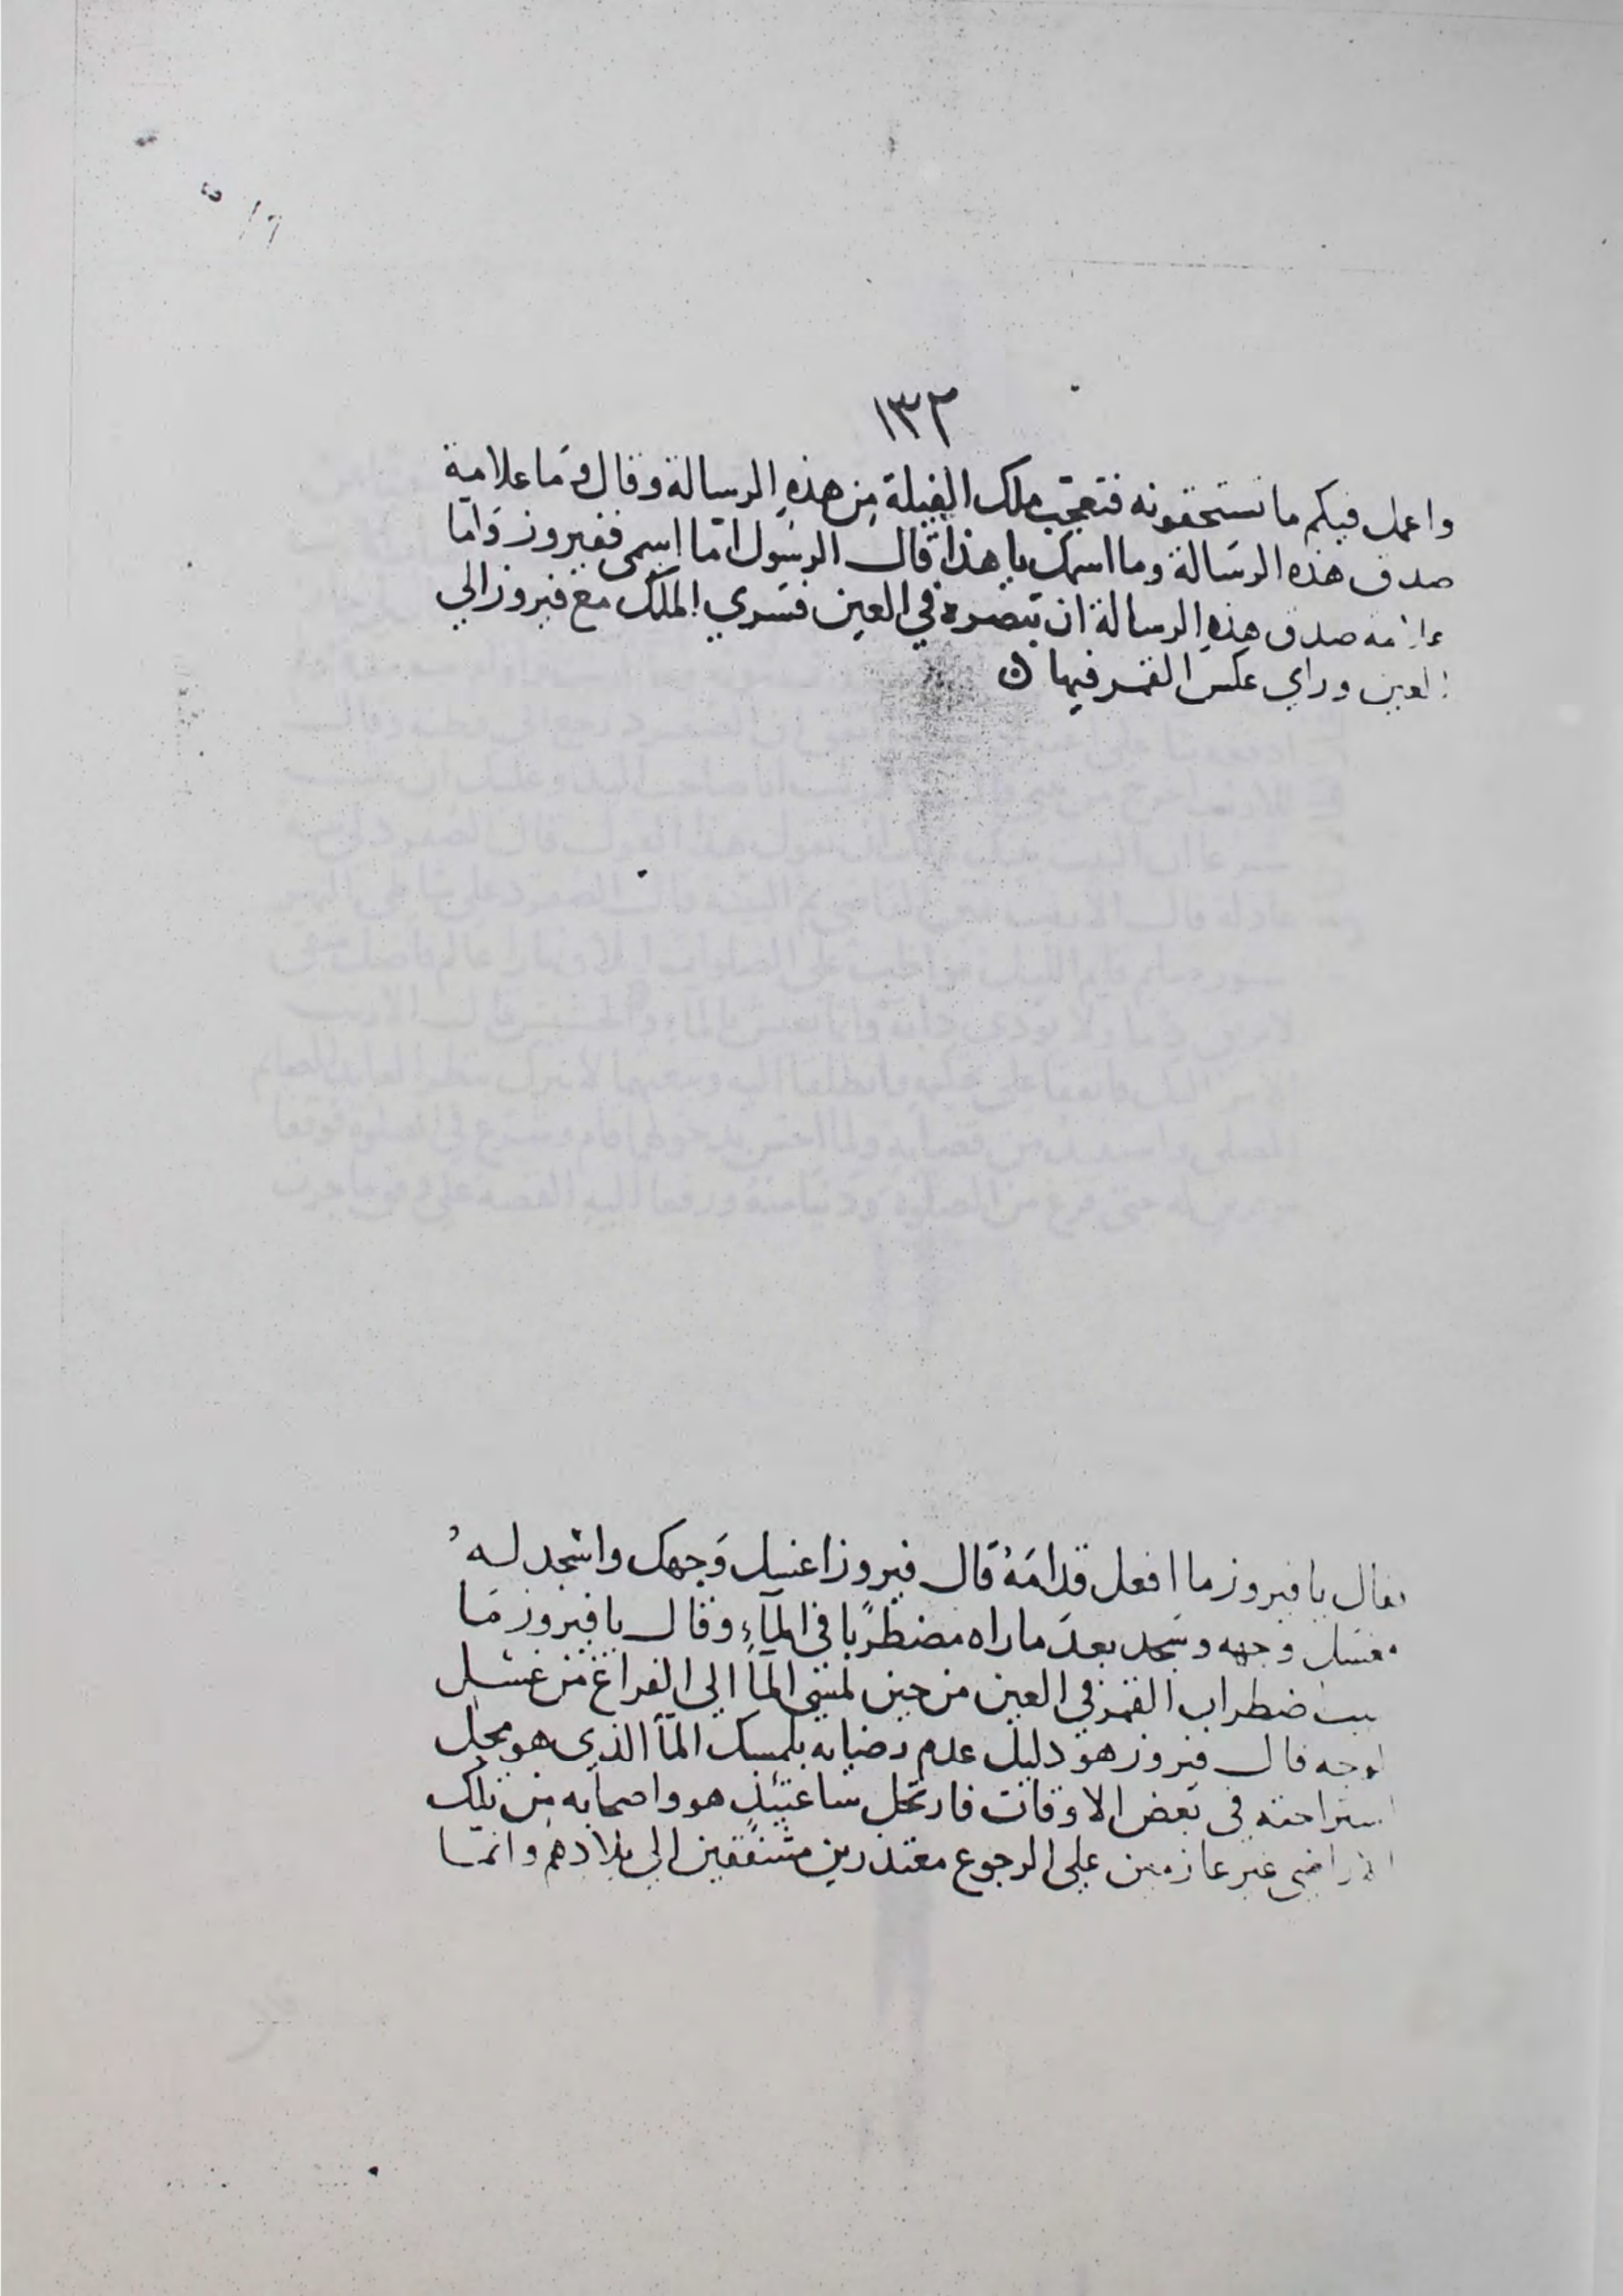 ١٣٢
واعمل فيكم ما تستحقونه فتعجب ملك الفيلة من هذه الرسالة وقال وما علامة
صدق هذه الرسالة وما اسمك يا هذا قال الرسول امّا اسمي ففيروز وامّا
علامة صدق هذه الرسالة ان تبصره في العين فسري الملك مع فيروز الي
العين وراي عكس القمر فيها
فقال يا فيروز ما افعل قدامَهُ قال فيروز اغسل وَجهك واسْجد لهُ
فغسل وجهه وسَجد بعدَ ما راه مضطربًا في المآءِ وقال يا فيروز مَا
سبب اضطراب القمر في العين من حين لمسي المآ الي الفراغ من غسْل
الوجه قال فيروز هو دليل عدم رضايه بلمسك المآ الذي هو محل
استراحته في بَعض الاوقات فارتحل ساعتئذٍ هو واصحابه من تلك
الاراضي غير عازمين علي الرجوع معتذرين متنفقين الي بلادهم وانمّا